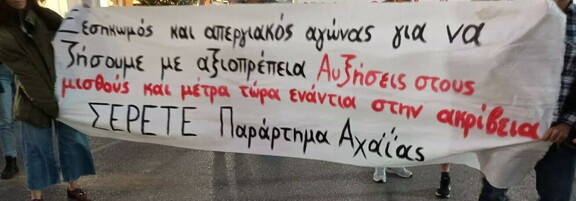 Ξεσηκωμός και απεργιακός αγώνας για να
ζήσουμε με αξιοπρέπεια Αυξήσεις στους
μισθούς και μέτρα τώρα ενάντια στην ακρίβεια
ΣΕΡΕΤΕ Παράρτημα Αχαΐας